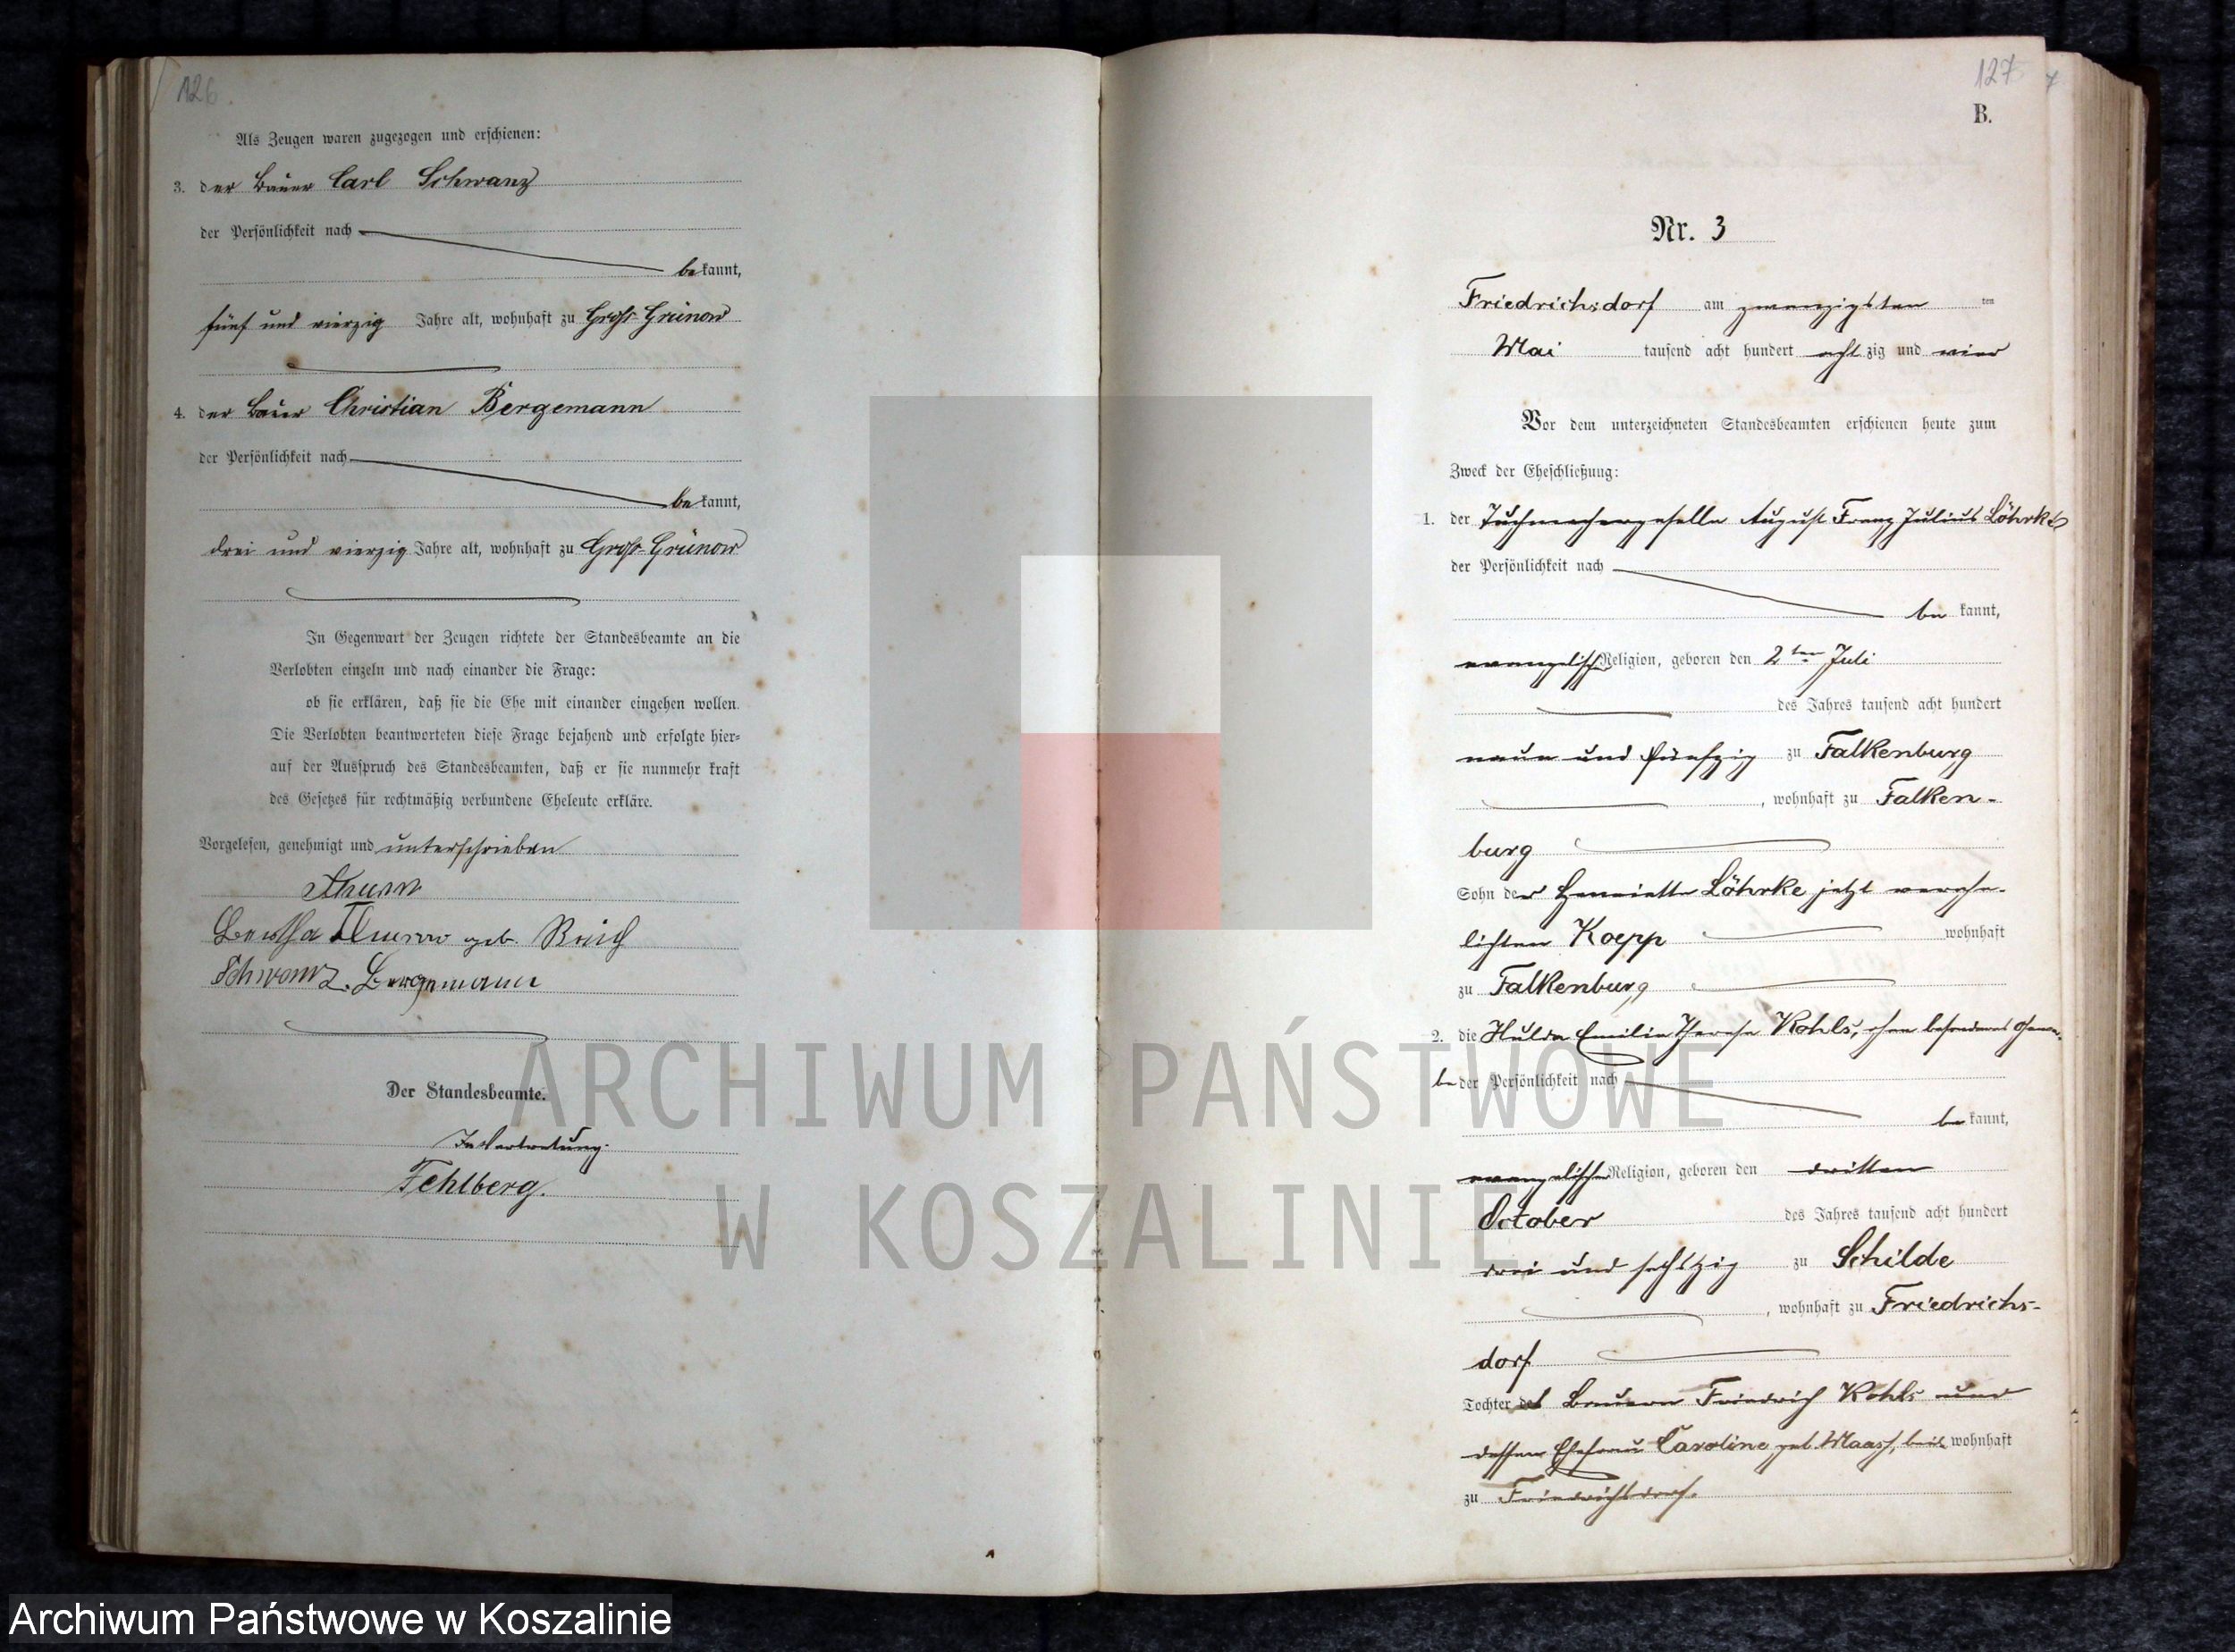 126
Als Zeugen waren zugezogen und erschienen:
3. der Bauer Carl Schwanz
der Persönlichkeit nach
bekannt,
fünf und vierzig Jahre alt, wohnhaft zu Groß-Grünow
4. der Bauer Christian Bergemann
der Persönlichkeit nach
bekannt,
drei und vierzig Jahre alt, wohnhaft zu Groß-Grünow
In Gegenwart der Zeugen richtete der Standesbeamte an die
Verlobten einzeln und nach einander die Frage:
ob sie erklären, daß sie die Ehe mit einander eingehen wollen.
Die Verlobten beantworteten diese Frage bejahend und erfolgte hier-
auf der Ausspruch des Standesbeamten, daß er sie nunmehr kraft
des Gesetzes für rechtmäßig verbundene Eheleute erkläre.
Vorgelesen, genehmigt und unterschrieben
Bertha geb.
Schwanz. Bergemann
Der Standesbeamte.
In Vertretung.
Fehlberg.
127
B.
Nr. 3
Friedrichsdorf am zwanzigsten ten
Mai tausend acht hundert achtzig und vier
Vor dem unterzeichneten Standesbeamten erschienen heute zum
Zweck der Eheschließung:
1. der Tuchmachergeselle August Franz Julius Löhrke
der Persönlichkeit nach
be kannt,
evangelischer Religion, geboren den 2ten Juli
des Jahres tausend acht hundert
neun und fünfzig zu Falkenburg
, wohnhaft zu Falken-
burg
Sohn der Henriette Löhrke jetzt verehe-
lichten Koepp wohnhaft
zu Falkenburg
2. die Hulda Emilie Therese Kohls, ohne besonderes Gewer-
be der Persönlichkeit nach
be kannt,
evangelischer Religion, geboren den dritten
October des Jahres tausend acht hundert
drei und sechszig zu Schilde
, wohnhaft zu Friedrichs-
dorf
Tochter des Bauern Friedrich Kohls und
dessen Ehefrau Caroline geb. Maass, wohnhaft
zu Friedrichsdorf.
ARCHIWUM PAŃSTWOWE
W KOSZALINIE
Archiwum Państwowe w Koszalinie